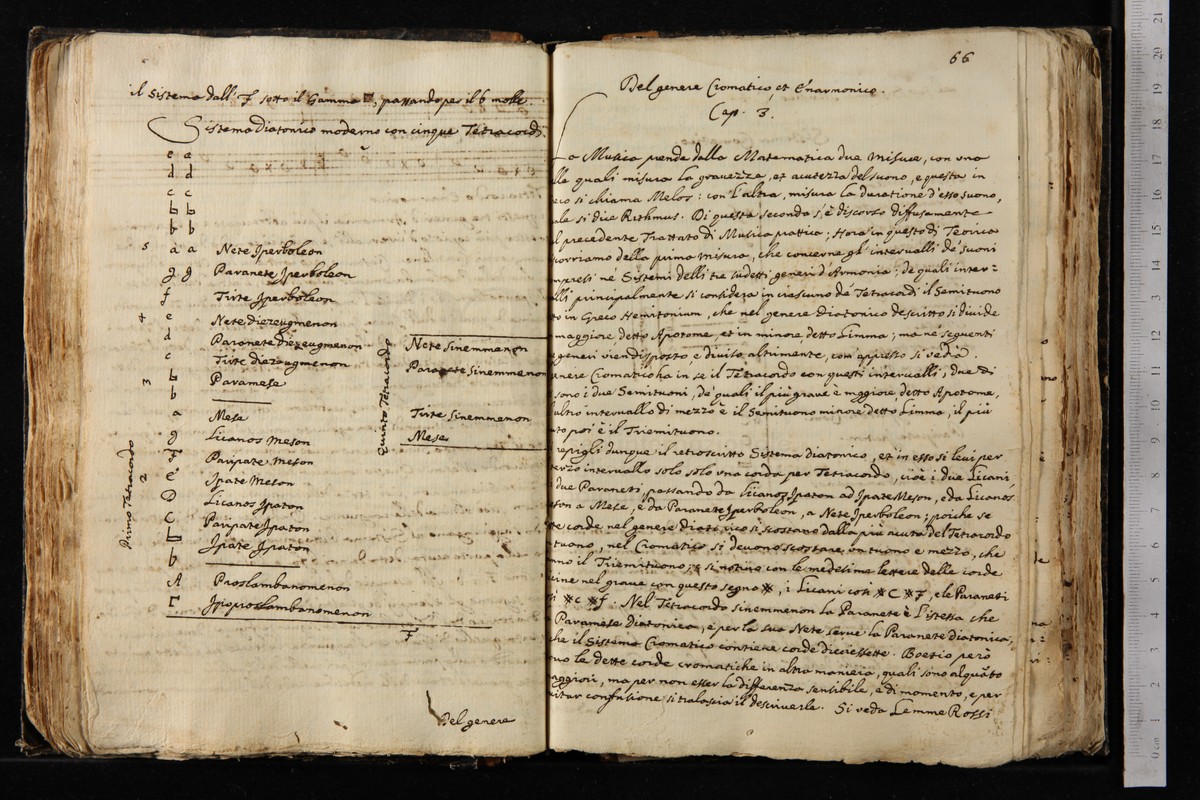 il Sistema dall' F sotto il Gamma, passando per il b molle.
Sistema Diatonico moderno con cinque Tetracordi.
e e
d d
c c
b b
b b
5 a a Nete Iperboleon
g g Paranete Iperboleon
f Trite Iperboleon
4 e Nete diezeugmenon
d Paranete diezeugmenon
c Trite diezeugmenon
3 b Paramese
b
a Mese
g Licanos Meson
F Paripate Meson
2 E Ipate Meson
D Licanos Ipaton
C Paripate Ipaton
b Ipate Ipaton
b
A Proslambanomenon
Γ Ipoproslambanomenon
F
Primo Tetracordo
Quinto Tetracordo
Nete Sinemmenon
Paranete Sinemmenon
Trite Sinemmenon
Mese
Del genere
66
Del genere Cromatico, et Enarmonico.
Cap. 3.
La Musica prende dalla Matematica due misure, con una
lle quali misura la gravezza, et acutezza del suono, e questa in
eco si chiama Melos: con l'altra, misura la duratione d'esso suono,
ale si dice Rithmus. Di questa seconda s'è discorso diffusamente
l precedente Trattato di Musica prattica; Hora in questo di Teorica
correremo della prima misura, che concerne gl'intervalli de' suoni
mpresi ne' Sistemi delli tre sudetti generi d'Armonia; de quali inter=
lli principalmente si considera in ciascuno de' Tetracordi il Semituono
to in Greco Hemitonium, che nel genere Diatonico descritto si divide
maggiore detto Apotome, et in minore detto Limma; ma ne' seguenti
generi vien disposto e diviso altrimente, con appresso si vedrà.
enere Cromatico ha in se il Tetracordo con questi intervalli, due di
sono i due Semituoni, de' quali il più grave è maggiore detto Apotome,
altro intervallo di mezzo è il Semituono minore detto Limma; il più
to poi è il Triemituono.
repigli dunque il retroscritto Sistema diatonico, et in esso si levi per
terzo intervallo solo solo una corda per Tetracordo, cioè i due Licani,
due Paraneti, passando da Licanos Ipaton ad Ipate Meson, e da Licanos
son a Mese, e da Paranete Iperboleon, a Nete Iperboleon; poiche se
te corde nel genere diatonico si scostano dalla più acuta del Tetracordo
tuono, nel Cromatico si devono scostare, un tuono e mezzo, che
nno il Triemituono; e si notino con le medesime lettere delle corde
cine nel grave con questo segno ※, i Licani così ※C ※F, e le Paraneti
si ※c ※f. Nel Tetracordo sinemmenon la Paranete è l'istessa che
Paramese Diatonica, e per la sua Nete serve la Paranete Diatonica,
he il Sistema Cromatico contiene corde diecissette. Boetio però
tuo le dette corde cromatiche in altra maniera, quali sono alquāto
aggiori, ma per non esser la differenza sensibile, e di momento, e per
vitar confusione si tralascia il descriverle. Si veda Lemme Rossi